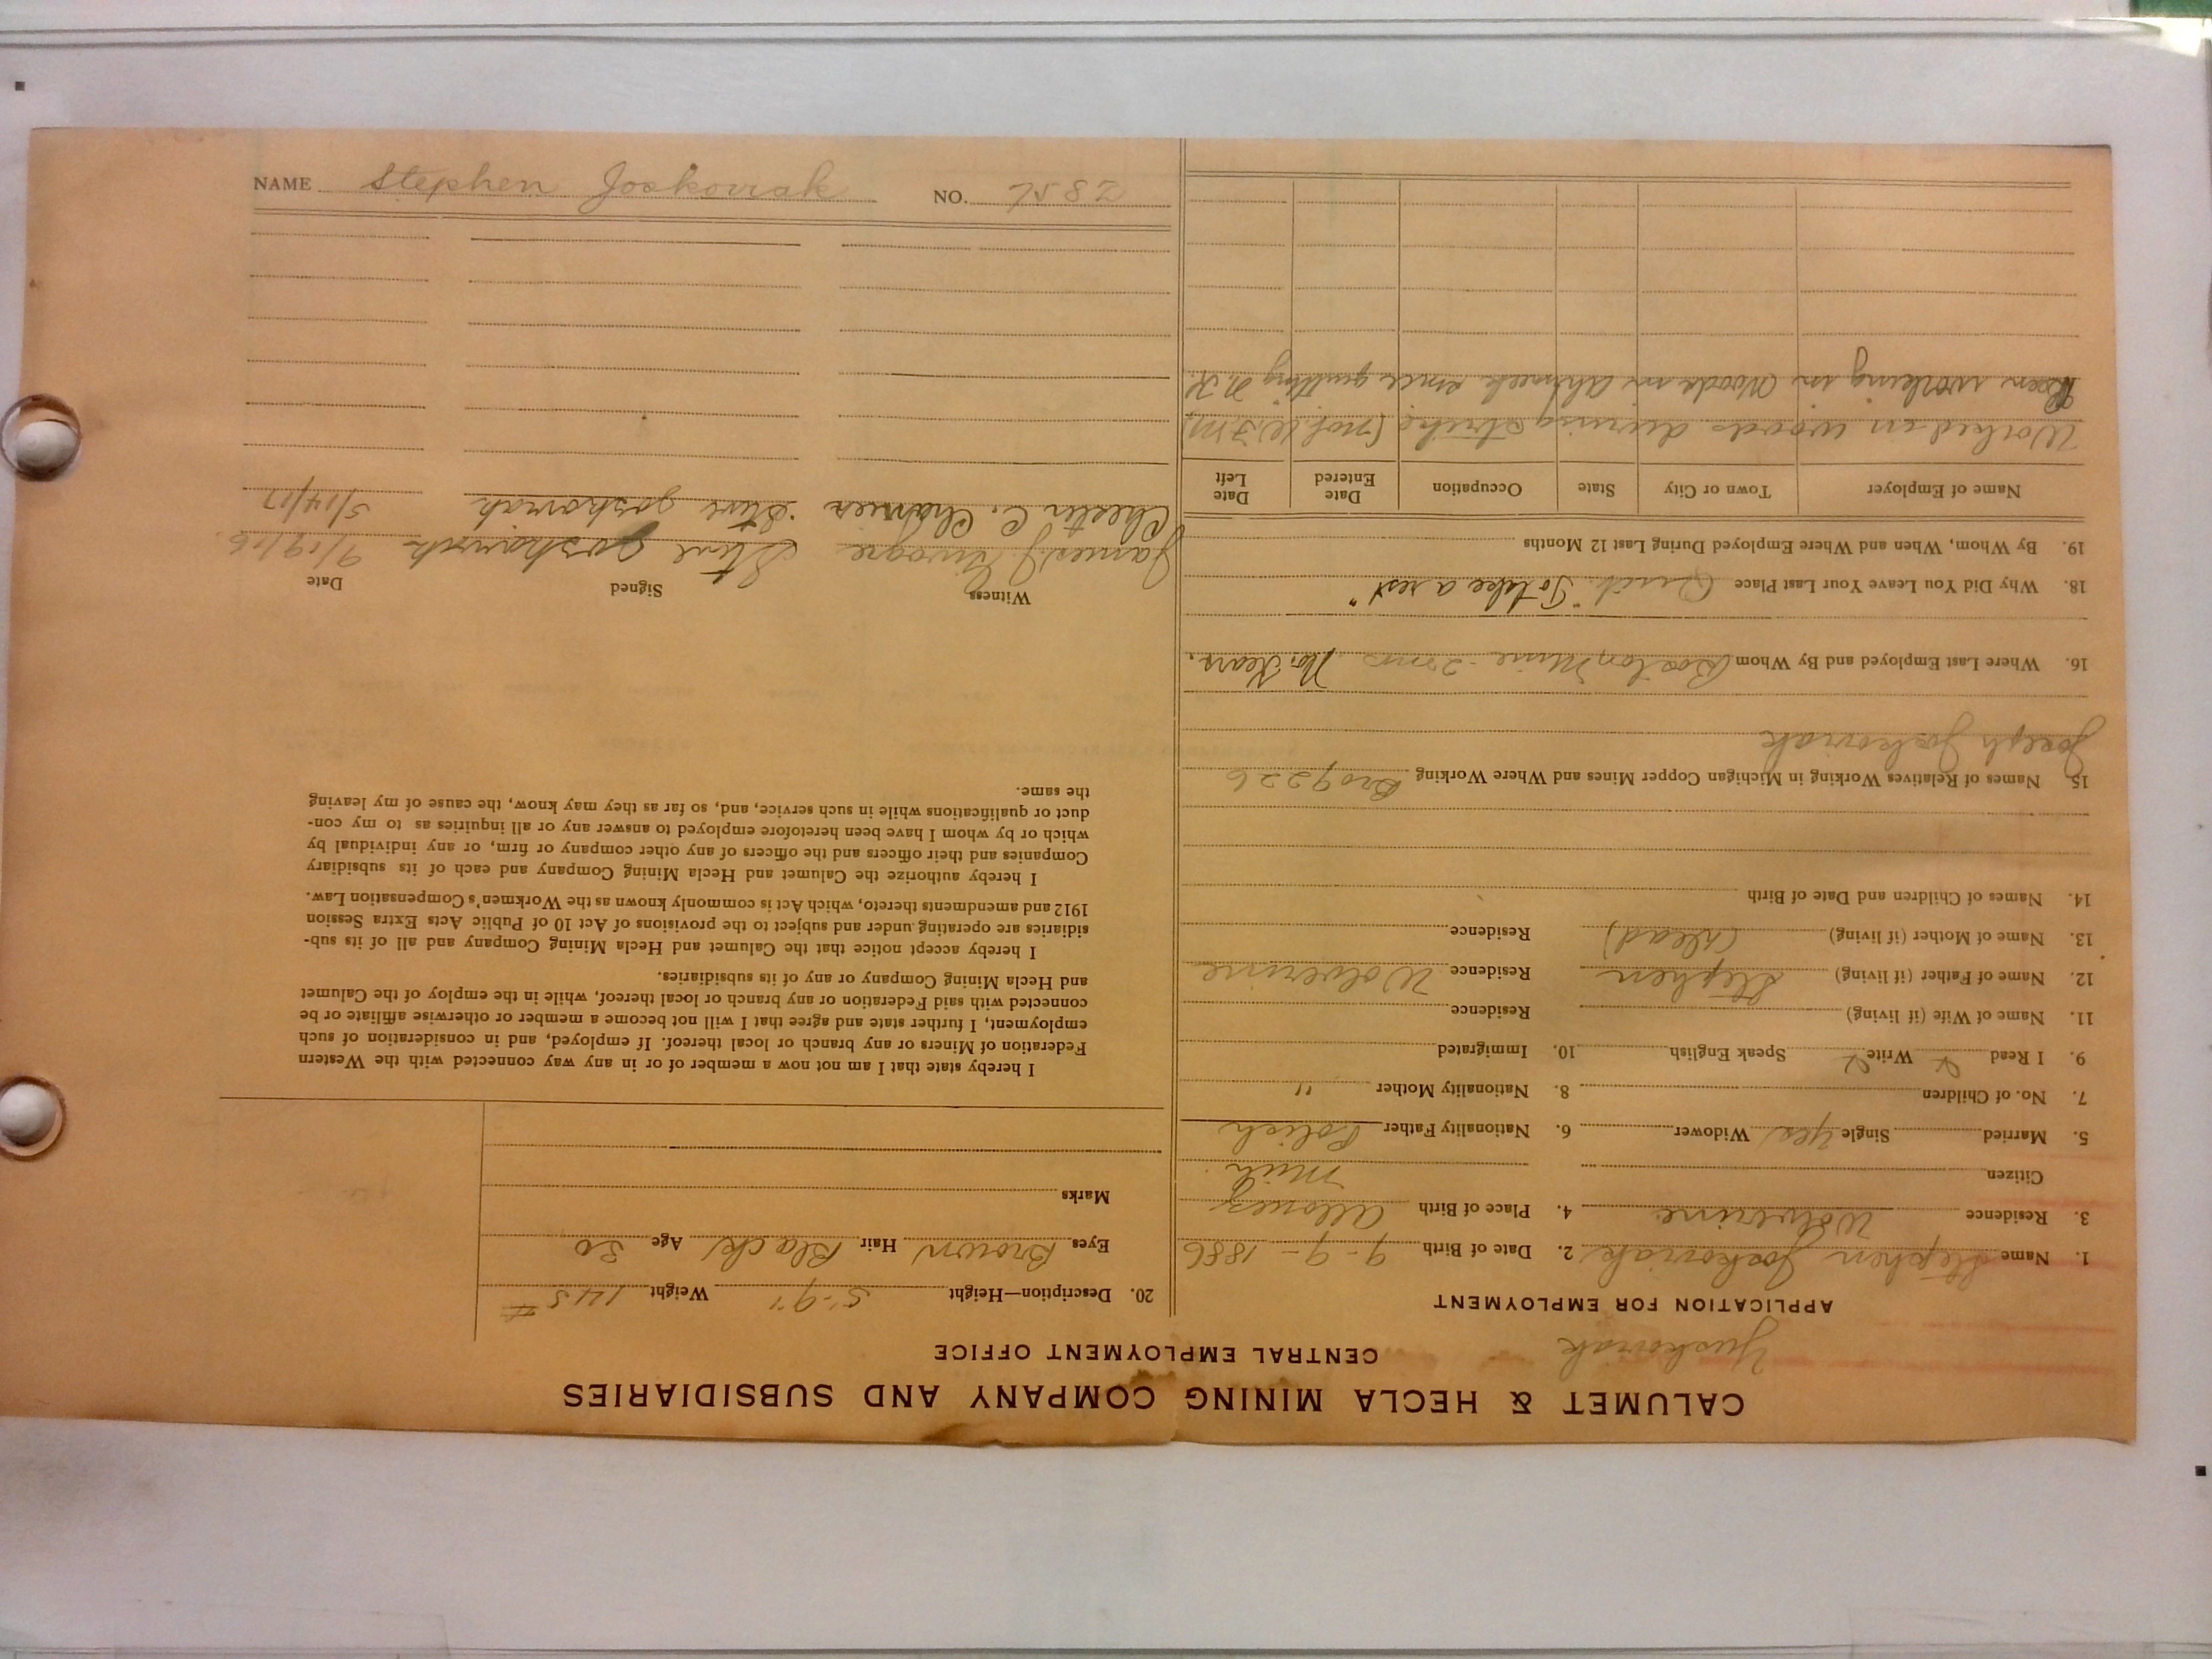 CALUMET & HECLA MINING COMPANY AND SUBSIDIARIES
CENTRAL EMPLOYMENT OFFICE
Yuskoviak
APPLICATION FOR EMPLOYMENT
1. Name Stephen Joskoviak 2. Date of Birth 9-9-1886
3. Residence Wolverine 4. Place of Birth Allouez
Citizen Mich.
5. Married Single Yes Widower 6. Nationality Father Polish
7. No. of Children 8. Nationality Mother "
9. I Read Write Speak English 10. Immigrated
11. Name of Wife (if living) Residence
12. Name of Father (if living) Stephen Residence Wolverine
13. Name of Mother (if living) (dead) Residence
14. Names of Children and Date of Birth
15. Names of Relatives Working in Michigan Copper Mines and Where Working Bro 9226
Joseph Joskoviak
16. Where Last Employed and By Whom Boston Mine No. Kears.
18. Why Did You Leave Your Last Place Quit. "To take a rest"
19. By Whom, When and Where Employed During Last 12 Months
Name of Employer Town or City State Occupation Date Entered Date Left
Worked in woods during strike (not W.F.M)
Been working in woods in Ahmeek since quitting N.K.
20. Description—Height 5'-9" Weight 145 #
Eyes Brown Hair Black Age 30
Marks
I hereby state that I am not now a member of or in any way connected with the Western
Federation of Miners or any branch or local thereof. If employed, and in consideration of such
employment, I further state and agree that I will not become a member or otherwise affiliate or be
connected with said Federation or any branch or local thereof, while in the employ of the Calumet
and Hecla Mining Company or any of its subsidiaries.
I hereby accept notice that the Calumet and Hecla Mining Company and all of its sub-
sidiaries are operating under and subject to the provisions of Act 10 of Public Acts Extra Session
1912 and amendments thereto, which Act is commonly known as the Workmen's Compensation Law.
I hereby authorize the Calumet and Hecla Mining Company and each of its subsidiary
Companies and their officers and the officers of any other company or firm, or any individual by
which or by whom I have been heretofore employed to answer any or all inquiries as to my con-
duct or qualifications while in such service, and, so far as they may know, the cause of my leaving
the same.
Witness Signed Date
James J Steve Joskoviak 9/19/16.
Chester C. Steve Joskoviak 5/14/17
NAME Stephen Joskoviak NO. 7582